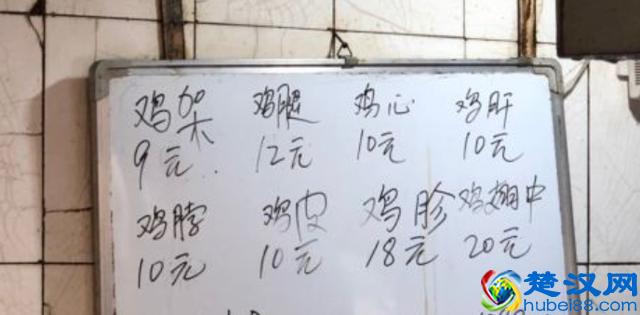 鸡架 鸡腿 鸡心 鸡肝
9元 12元 10元 10元
鸡脖 鸡皮 鸡胗 鸡翅中
10元 10元 18元 20元
楚汉网
hubei88.com